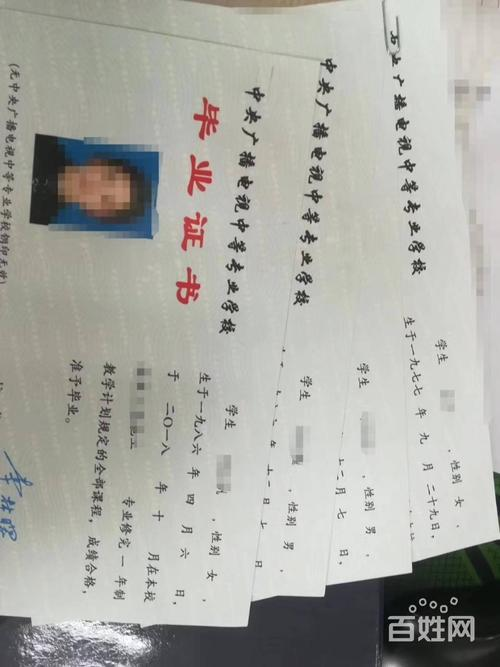 中央广播电视中等专业学校
毕业证书
(无中央广播电视中等专业学校钢印无效)
学生
,性别 女 ,
生于一九八六 年 四 月 六 日,
于 二〇一八 年 十 月在本校
专业修完 一 年制
教学计划规定的全部课程,成绩合格,
准予毕业。
中央广播电视中等专业学校
学生
,性别 男 ,
中央广播电视中等专业学校
学生
,性别 男 ,
十二月 七 日,
广播电视中等专业学校
学生
,性别 女 ,
生于一九七七 年 九 月 二十九日,
百姓网